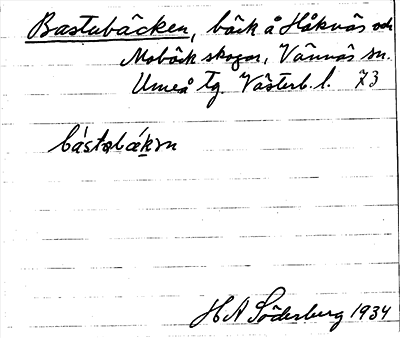 Bastubäcken, bäck å Håknäs och
Mobäck skogar, Vännäs sn.
Umeå tg. Västerb. l. 73
bástobǽkɔn
H A Söderberg 1934